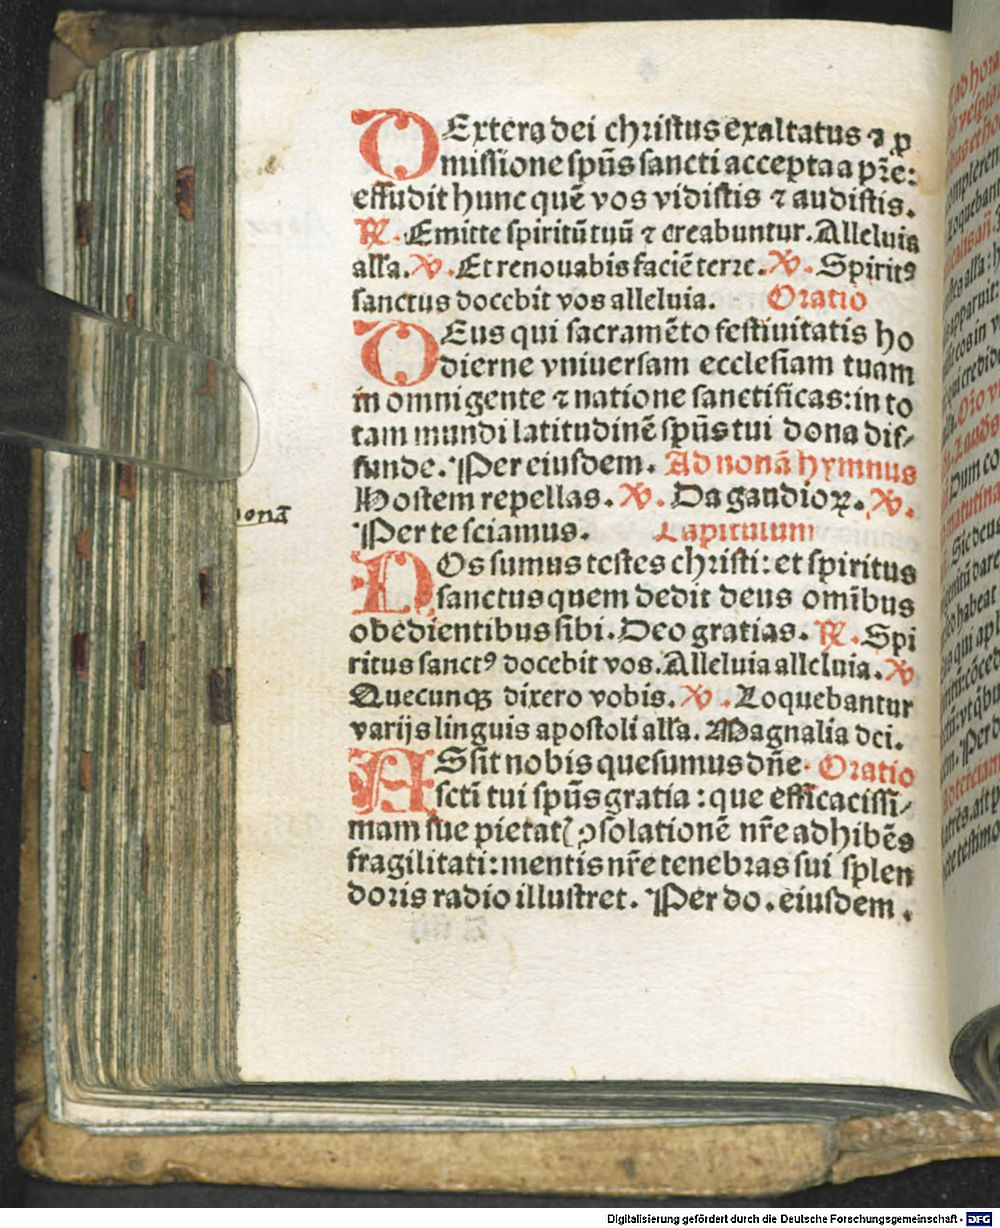 DExtera dei christus exaltatus ⁊ ꝓ
missione spūs sancti accepta a pr̄e:
effudit hunc quē vos vidistis ⁊ audistis.
℟. Emitte spiritū tuū ⁊ creabuntur. Alleluia
alľa. ℣. Et renouabis faciē terre. ℣. Spiritꝰ
sanctus docebit vos alleluia. Oratio
DEus qui sacramēto festiuitatis ho
dierne vniuersam ecclesiam tuam
in omni gente ⁊ natione sanctificas: in to
tam mundi latitudinē spūs tui dona dif⸗
funde. Per eiusdem. Ad nonā hymnus
Hostem repellas. ℣. Da gaudioꝝ. ℣.
Per te sciamus. Capitulum
onā
NOs sumus testes christi: et spiritus
sanctus quem dedit deus omībus
obedientibus sibi. Deo gratias. ℟. Spi
ritus sanctꝰ docebit vos. Alleluia alleluia. ℣
Quecunqꝫ dixero vobis. ℣. Loquebantur
varijs linguis apostoli alľa. Magnalia dei.
ASsit nobis quesumus dn̄e Oratio
scti tui spūs gratia: que efficacissi⸗
mam sue pietatꝭ ꝯsolationē nr̄e adhibēs
fragilitati: mentis nr̄e tenebras sui splen
doris radio illustret. Per do. eiusdem.
Digitalisierung gefördert durch die Deutsche Forschungsgemeinschaft - DFG